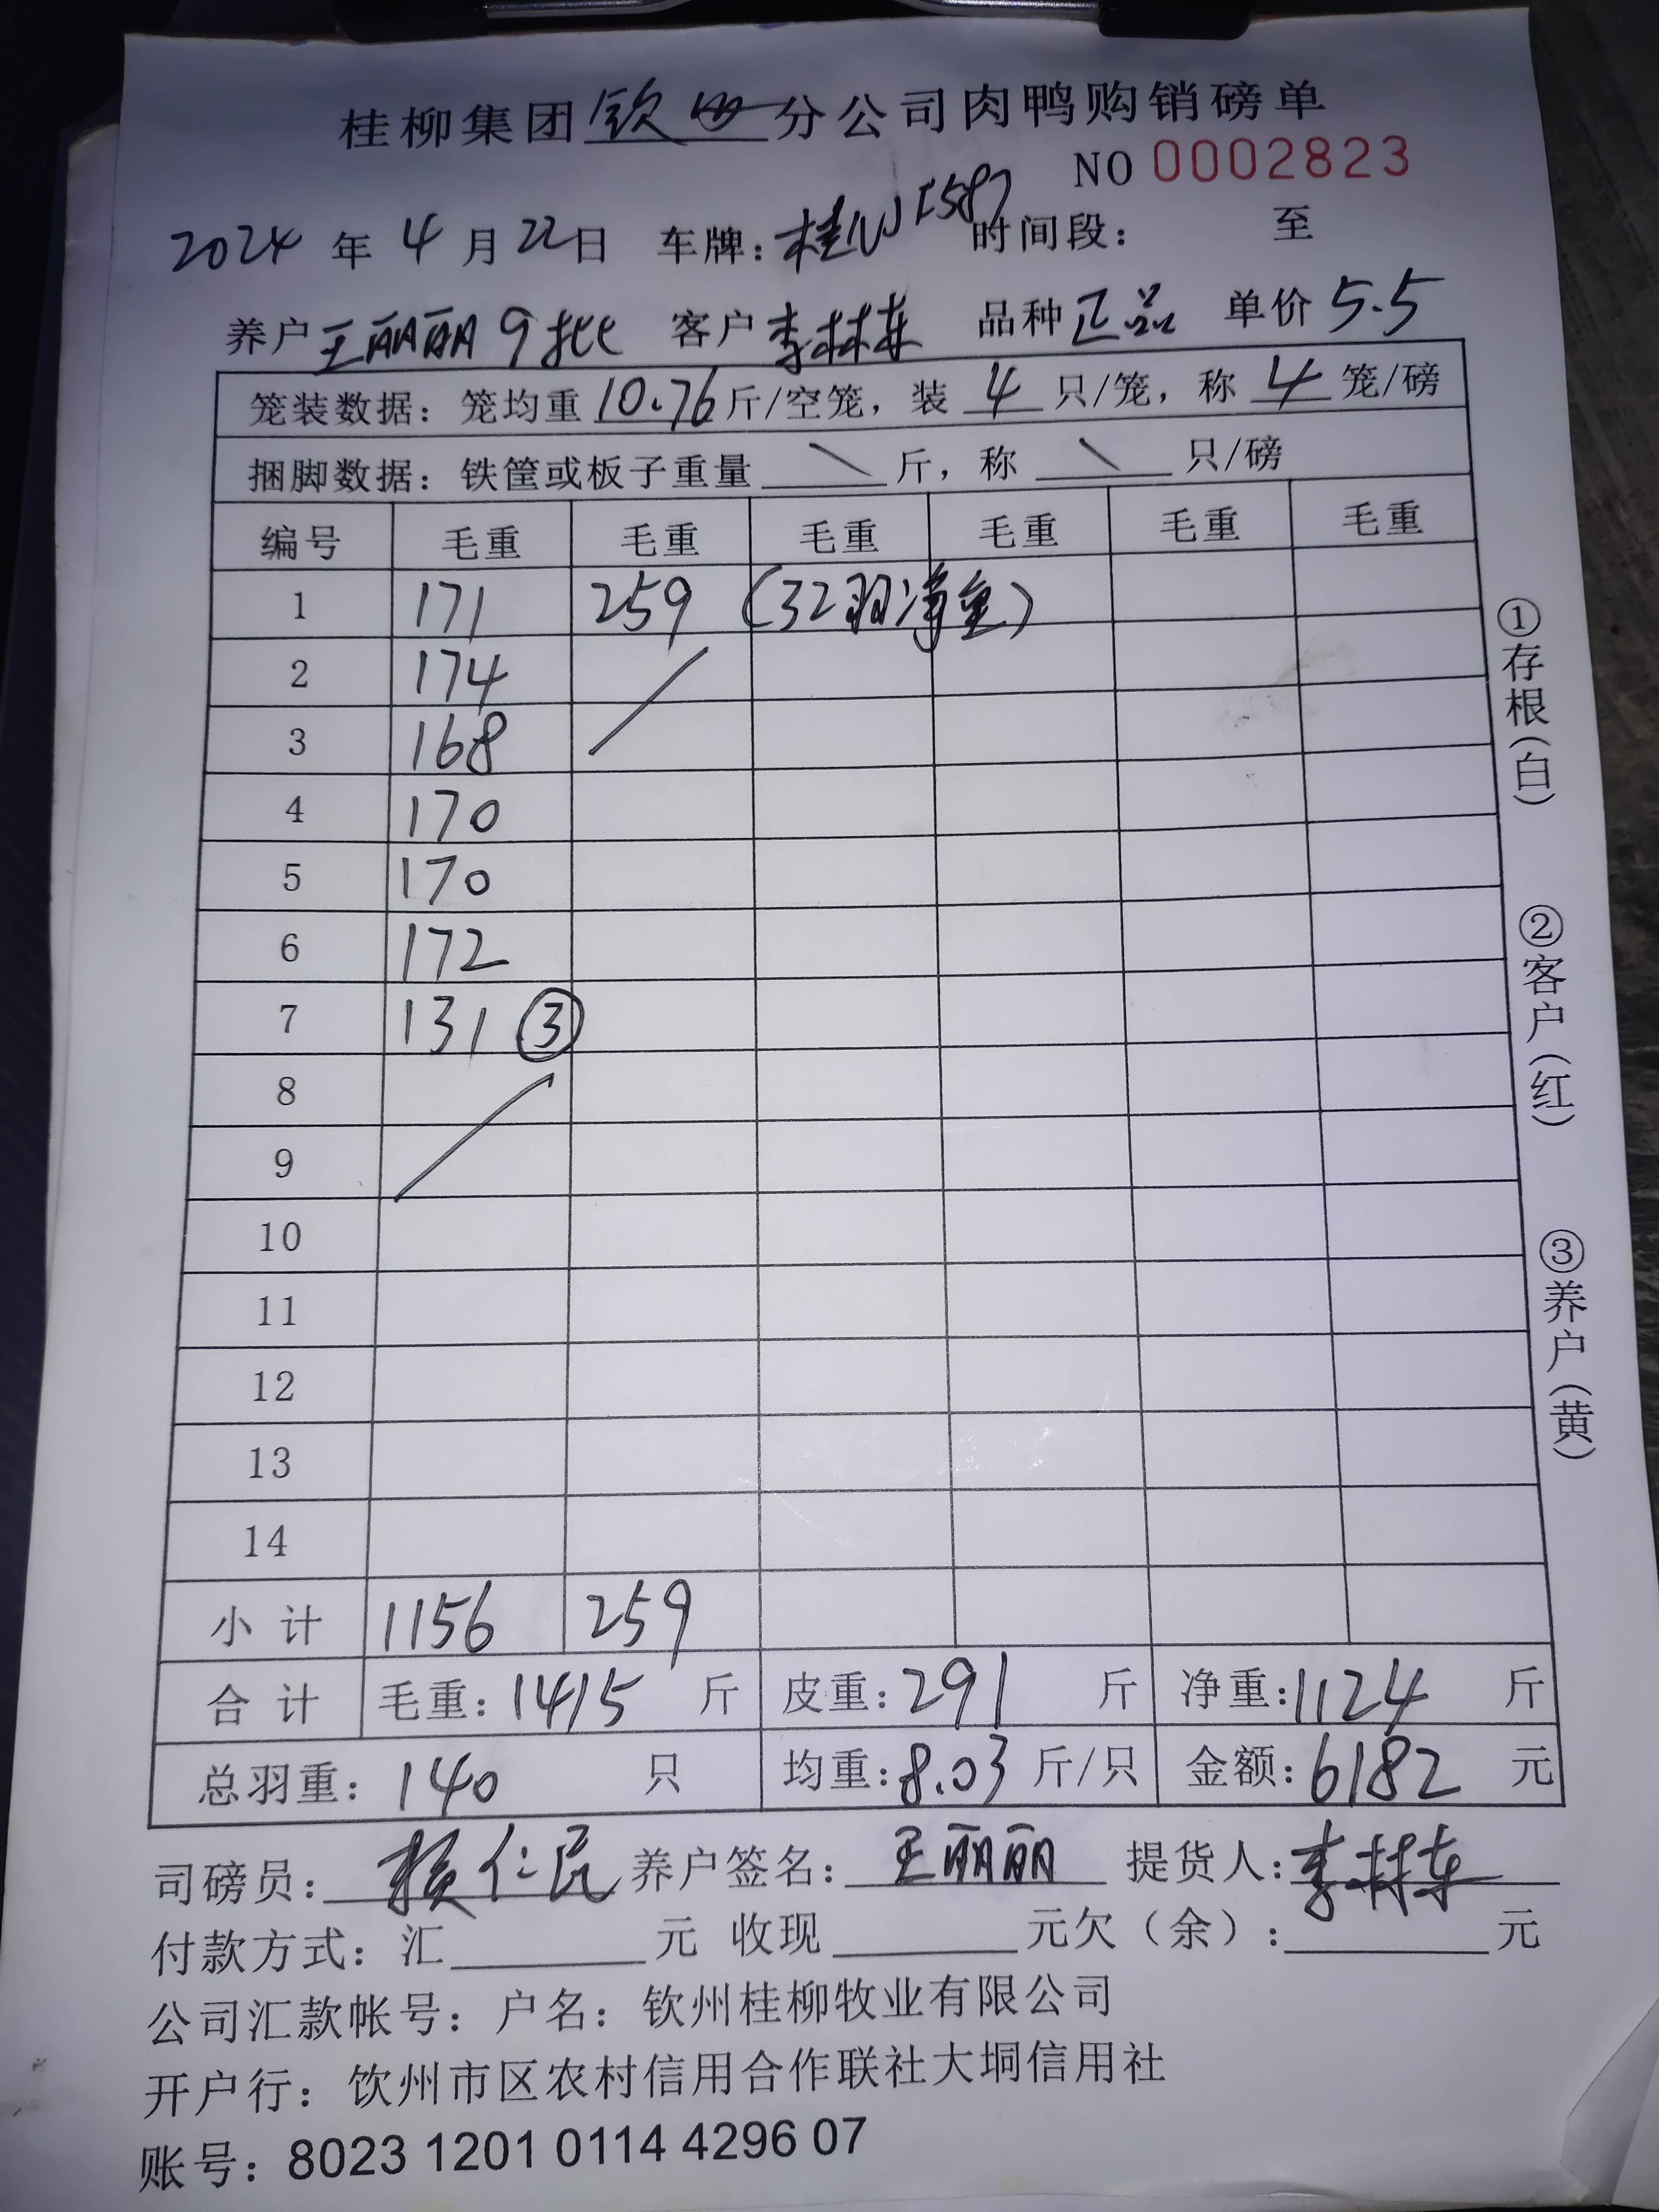 桂柳集团钦州分公司肉鸭购销磅单
NO 0002823
2024 年 4 月 22日 车牌: 桂N 时间段: 至
养户 王丽丽 9批 客户 李林东 品种 正品 单价 5.5
笼装数据: 笼均重 10.76 斤/空笼, 装 4 只/笼, 称 4 笼/磅
捆脚数据: 铁筐或板子重量 \ 斤, 称 \ 只/磅
编号 毛重 毛重 毛重 毛重 毛重 毛重
1 171 259 (32羽净重)
2 174
3 168
4 170
5 170
6 172
7 131 ③
8
9
10
11
12
13
14
小计 1156 259
合计 毛重: 1415 斤 皮重: 291 斤 净重: 1124 斤
总羽重: 140 只 均重: 8.03 斤/只 金额: 6182 元
司磅员: 赖仁民 养户签名: 王丽丽 提货人: 李林东
付款方式: 汇 元 收现 元欠(余): 元
公司汇款帐号: 户名: 钦州桂柳牧业有限公司
开户行: 钦州市区农村信用合作联社大垌信用社
账号: 8023 1201 0114 4296 07
①存根(白)
②客户(红)
③养户(黄)